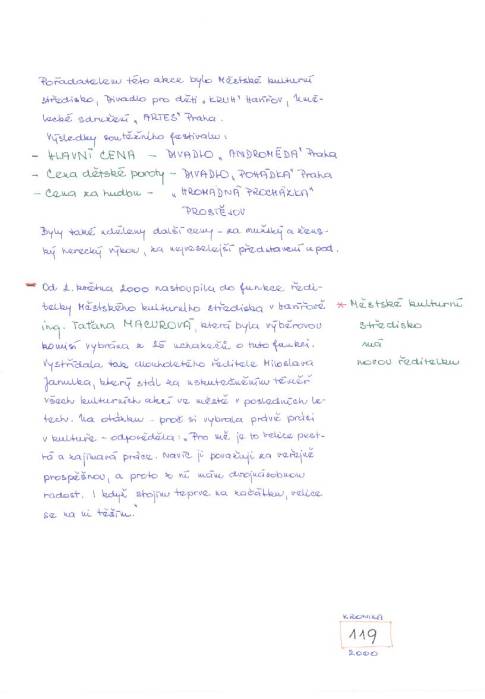 Pořadatelem této akce bylo Městské kulturní
středisko, Divadlo pro děti „KRUH" Havířov, Umě-
lecké sdružení „ARTES" Praha.
Výsledky soutěžního festivalu:
- HLAVNÍ CENA - DIVADLO „ANDROMÉDA" Praha
- Cena dětské poroty - DIVADLO „POHÁDKA" Praha
- Cena za hudbu - „HROMADNÁ PROCHÁZKA"
PROSTĚJOV
Byly také uděleny další ceny - za mužský a žens-
ký herecký výkon, za nejveselejší představení a pod.
- Od 2. května 2000 nastoupila do funkce ředi-
telky Městského kulturního střediska v Havířově
ing. Taťána MACUROVÁ, která byla výběrovou
komisí vybrána z 25 uchazečů o tuto funkci.
Vystřídala tak dlouholetého ředitele Miloslava
který stál za uskutečněním téměř
všech kulturních akcí ve městě v posledních le-
tech. Na otázku - proč si vybrala právě práci
v kultuře - odpověděla: „Pro mě je to velice pest-
rá a zajímavá práce. Navíc ji považuji za veřejně
prospěšnou, a proto z ní mám dvojnásobnou
radost. I když stojím teprve na začátku, velice
se na ni těším."
* Městské kulturní
středisko
má
novou ředitelku
KRONIKA
119
2000